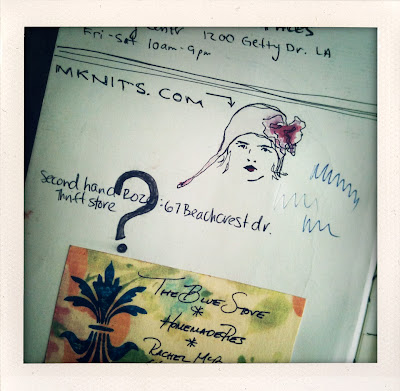 Fri-Sat 10am-9pm 1200 Getty Dr. LA
MKNITS.COM
?
Second hand Roze : 67 Beachcrest dr.
Thrift store
The Blue Stove
*
Homemade Pies
*
Rachel